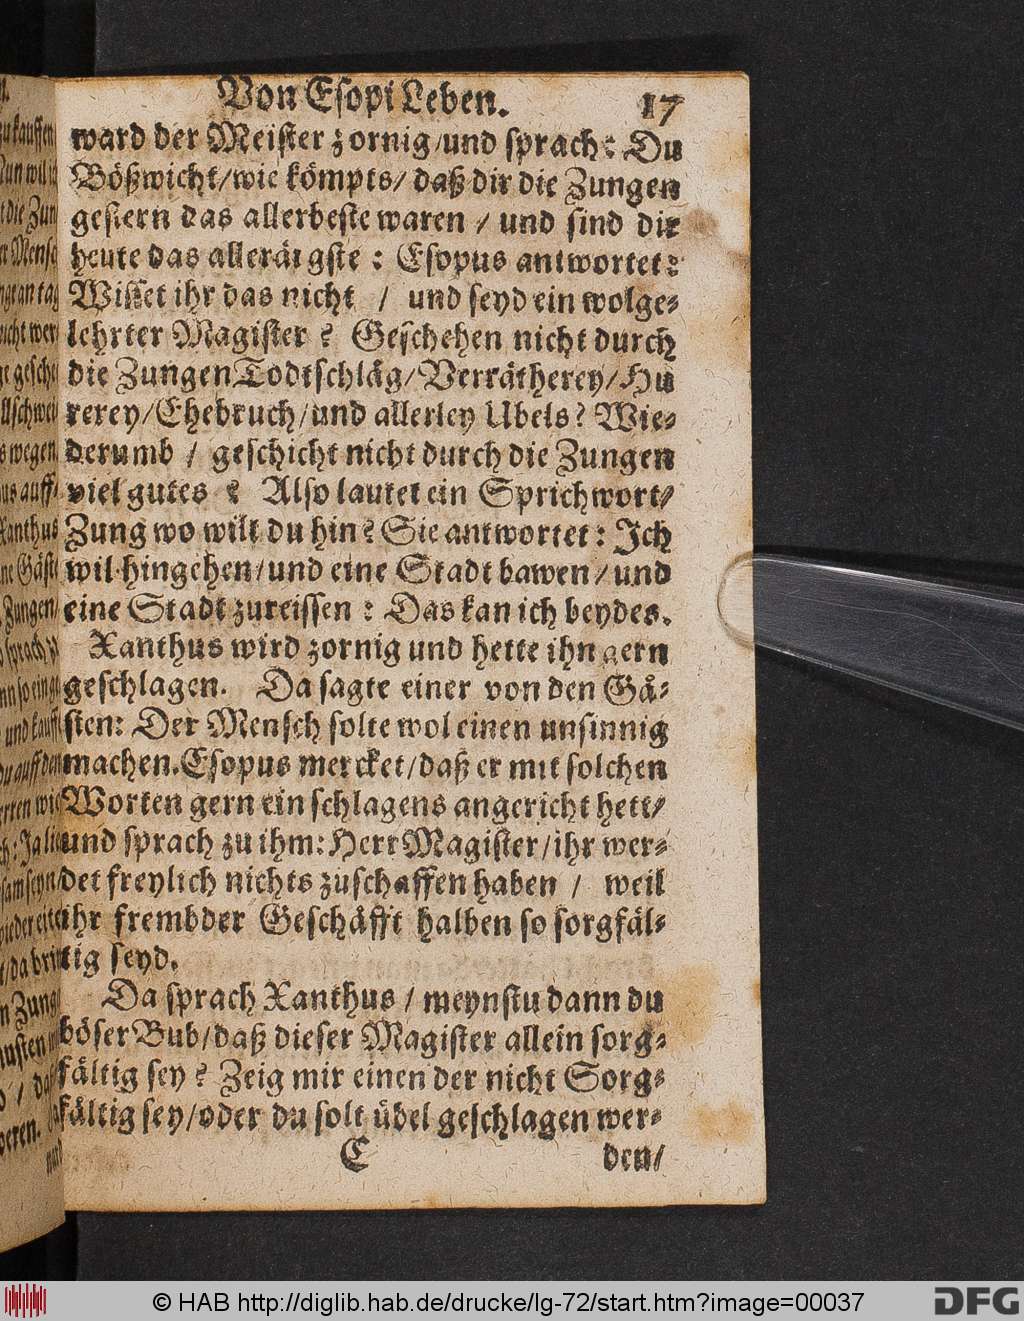 Von Esopi Leben. 17
ward der Meister zornig/und sprach: Du
Bößwicht/wie kömpts/ daß dir die Zungen
gestern das allerbeste waren / und sind dir
heute das allerärgste : Esopus antwortet:
Wisset ihr das nicht / und seyd ein wolge-
lehrter Magister ? Geschehen nicht durch
die Zungen Todtschläg/Verrätherey/Hu
rerey/Ehebruch/und allerley Ubels? Wie-
derumb / geschicht nicht durch die Zungen
viel gutes ? Also lautet ein Sprichwort/
Zung wo wilt du hin? Sie antwortet: Ich
wil hingehen/und eine Stadt bawen/und
eine Stadt zureissen : Das kan ich beydes.
Xanthus wird zornig und hette ihn gern
geschlagen. Da sagte einer von den Gä-
sten: Der Mensch solte wol einen unsinnig
machen. Esopus mercket/daß er mit solchen
Worten gern ein schlagens angericht hett/
und sprach zu ihm: Herr Magister/ihr wer-
det freylich nichts zuschaffen haben / weil
ihr frembder Geschäfft halben so sorgfäl-
tig seyd.
Da sprach Xanthus / meynstu dann du
böser Bub/daß dieser Magister allein sorg-
fältig sey? Zeig mir einen der nicht Sorg-
fältig sey/oder du solt übel geschlagen wer-
C den/
© HAB http://diglib.hab.de/drucke/lg-72/start.htm?image=00037
DFG